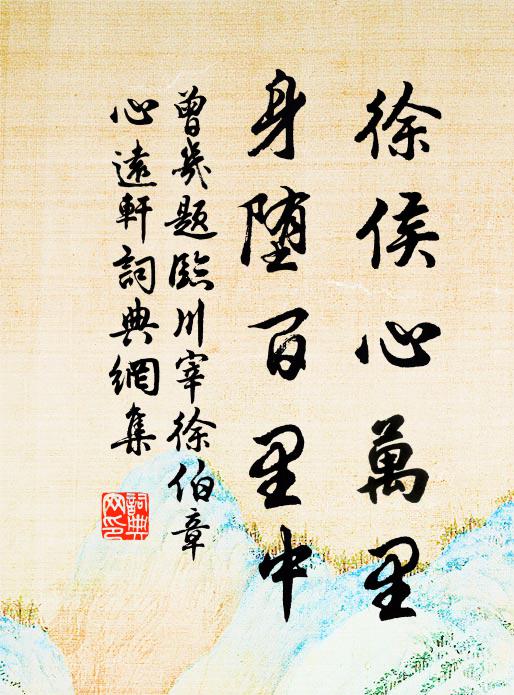 徐侯心萬里
身墮百里中
曾幾題臨川宰徐伯章
心遠軒詞典網集
詞典网印